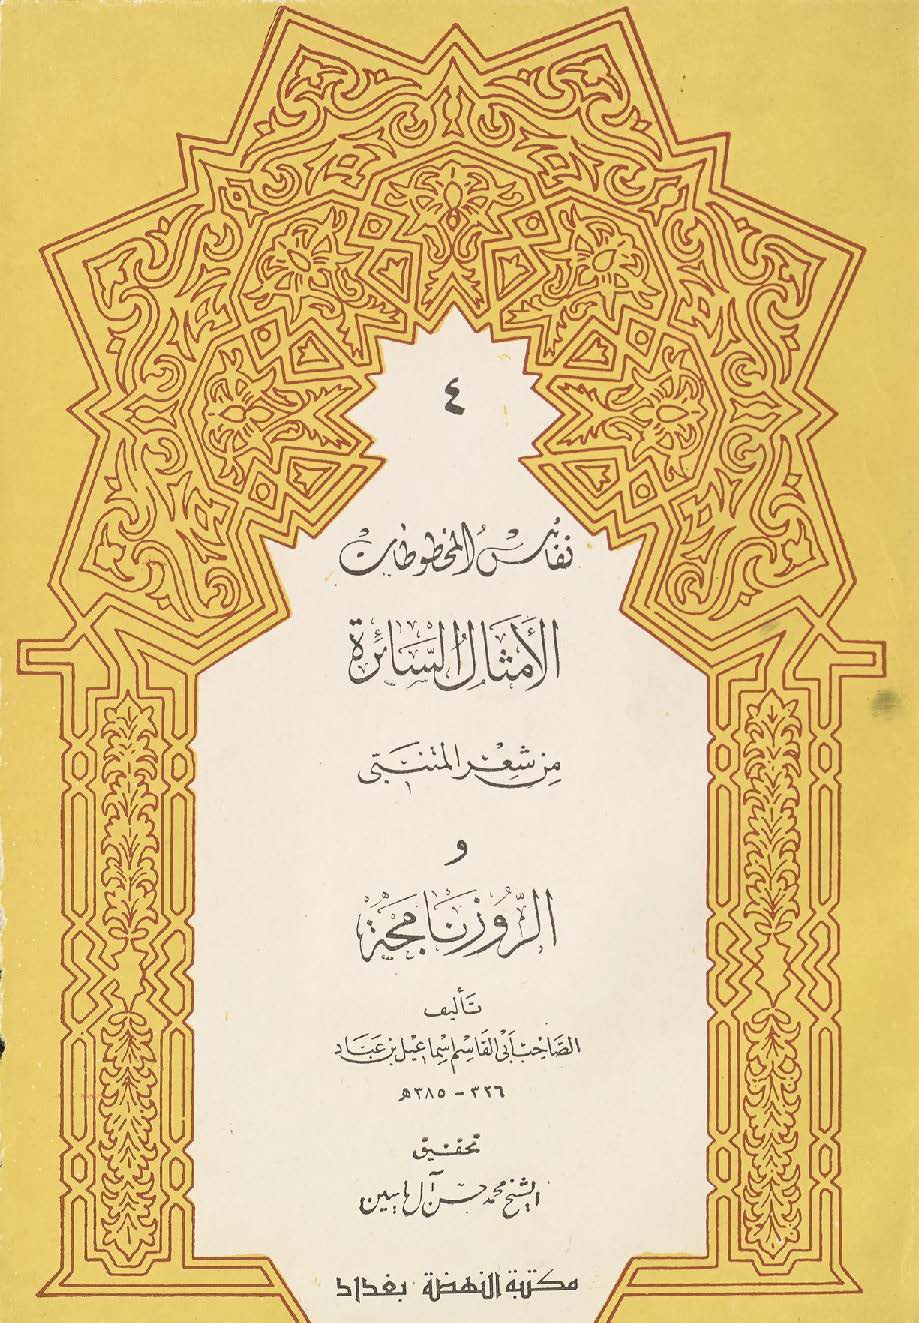 ٤
نفائس المخطوطات
الأمثال السائرة
من شعر المتنبي
و
الروزنامجة
تأليف
الصاحب أبي القاسم إسماعيل بن عباد
٣٢٦ - ٣٨٥ هـ
تحقيق
الشيخ محمد حسن آل ياسين
مكتبة النهضة بغداد